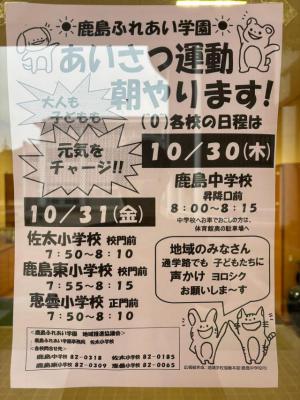 鹿島ふれあい学園
あいさつ運動
朝やります!
大人も
子どもも
元気を
チャージ!!
(\0)各校の日程は
10/30(木)
鹿島中学校
昇降口前
8:00〜8:15
中学校へお車でおこしの方は、
体育館奥の駐車場へ
10/31(金)
佐太小学校 校門前
7:50〜8:10
鹿島東小学校 校門前
7:55〜8:15
恵曇小学校 正門前
7:50〜8:10
地域のみなさん
通学路でも 子どもたちに
声かけ ヨロシク
お願いしま〜す
<鹿島ふれあい学園 地域推進協議会>
鹿島ふれあい学園事務局 佐太小学校
<各校問合せ先>
鹿島中学校 82-0318 佐太小学校 82-0185
鹿島東小学校 82-0309 恵曇小学校 82-0065